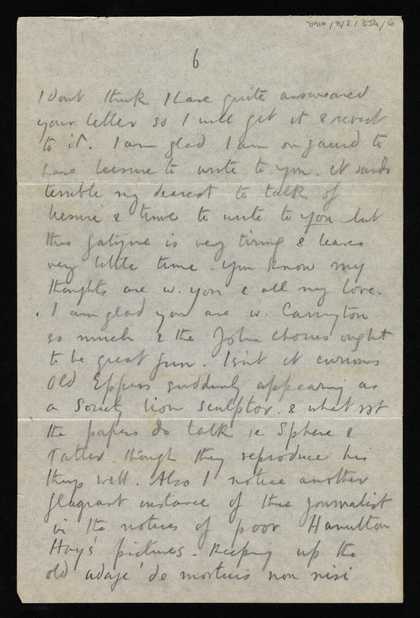 6
I Dont think I have quite answeared
your letter so I will get it & revert
to it. I am glad I am on guard to
have leisure to write to you. it sounds
terrible my dearest to talk of
liesure & time to write to you but
this fatigue is very tiring & leaves
very little time. you know my
thoughts are w. you & all my love.
I am glad you are w. Carrington
so much & the John chorus ought
to be great fun. Isnt it curious
old Eppers suddenly appearing as
a Society lion sculptor. & what rot
the papers do talk ie Sphere &
Tatler. though they reproduce his
things well. Also I notice another
flagrant instance of the journalist
in the notices of poor Hamilton
Hay's pictures. Keeping up the
old adage 'de mortuis non nisi